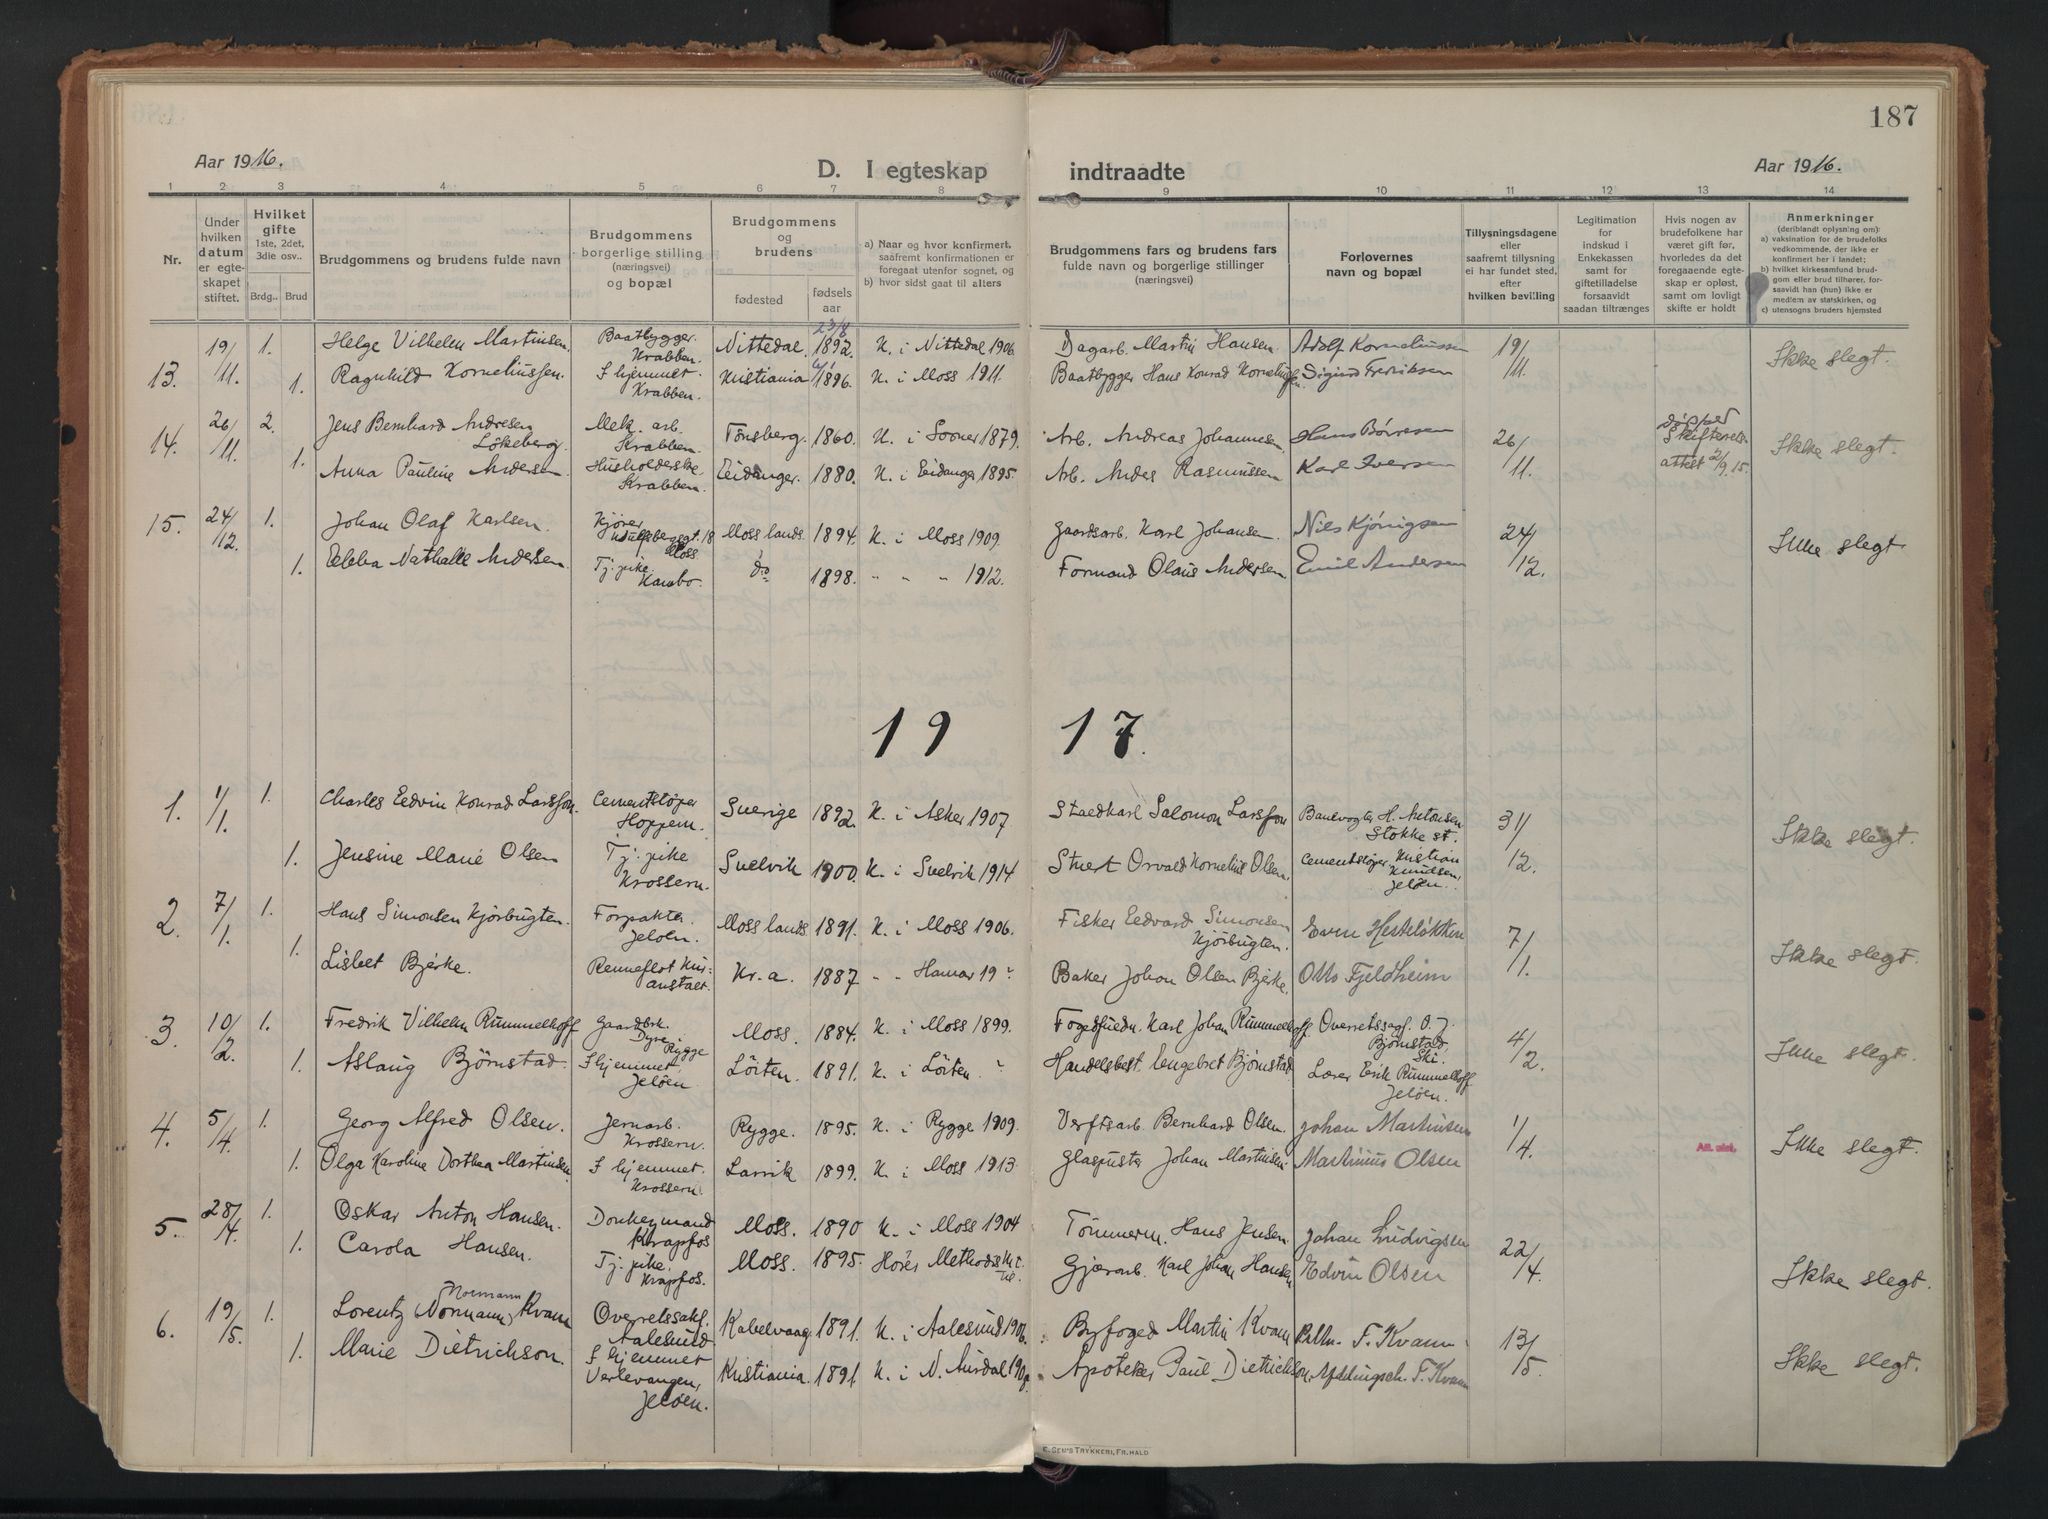 187
Aar 1916.
D. I egteskap indtraadte
Aar 1916.
1 2 3 4 5 6 7 8 9 10 11 12 13 14
Nr.
Under hvilken datum er egteskapet stiftet.
Hvilket gifte 1ste, 2det, 3die osv..
Brdg.. Brud
Brudgommens og brudens fulde navn
Brudgommens borgerlige stilling (næringsvei) og bopæl
Brudgommens og brudens
fødested
fødsels aar
a) Naar og hvor konfirmert, saafremt konfirmationen er foregaat utenfor sognet, og
b) hvor sidst gaat til alters
Brudgommens fars og brudens fars fulde navn og borgerlige stillinger (næringsvei)
Forlovernes navn og bopæl
Tillysningsdagene eller saafremt tillysning ei har fundet sted, efter hvilken bevilling
Legitimation for indskud i Enkekassen samt for giftetilladelse forsaavidt saadan tiltrænges
Hvis nogen av brudefolkene har været gift før, hvorledes da det foregaaende egteskap er opløst, samt om lovlig skifte er holdt
Anmerkninger (deriblandt oplysning om):
a) vaksination for de brudefolks vedkommende, der ikke er konfirmert her i landet;
b) hvilket kirkesamfund brudgom eller brud tilhører, forsaavidt han (hun) ikke er medlem av statskirken, og
c) utensogns bruders hjemsted
13. 19/11. 1. Helge Vilhelm Martinsen. Baatbygger. Krabben. Nittedal. 23/8 1892. K. i Nittedal 1906. Dagarb. Martin Hansen. Adolf Korneliussen 19/11. Ikke slegt.
1. Ragnhild Korneliussen. I hjemmet. Krabben. Kristiania 1896. K. i Moss 1911. Baatbygger Hans Konrad Korneliussen. Sigurd Fredriksen
14. 26/11. 2. Jens Bernhard Andresen Lökeberg. Mek. arb. Krabben. Tönsberg. 1860. K. i Sooner 1879. Arb. Andreas Johannesen. Hans Börresen 26/11. Skifterets attest 2/9.15. Ikke slegt.
1. Anna Pauline Andersen. Husholderske Krabben. Eidanger. 1880. K. i Eidanger 1895. Arb. Anders Rasmussen Karl Iversen
15. 24/12. 1. Johan Olaf Karlsen. Kjører Moss Moss lands. 1894. K. i Moss 1909. Gaardsarb. Karl Johansen. Nils Kjönigsen 24/12. Ikke slegt.
1. Ebba Nathalie Andersen. Tj. pike. Kambo. do 1898. " " " 1912. Formand Olaus Andersen Emil Andersen
19 17.
1. 1/1. 1. Charles Edvin Konrad Larsson. Cementstøper Hoppern. Sverige 1892. K. i Asker 1907. Staedkarl Salomon Larsson Banevogter H. Antonsen Stokke st. 31/12. Ikke slegt.
1. Jensine Marie Olsen Tj. pike Krossern. Svelvik 1900. K. i Svelvik 1914 Stuert Osvald Kornelius Olsen. Cementstøper Kristian Knudsen, Jeløen.
2. 7/1. 1. Hans Simonsen Kjörbugten. Forpakter Jeløen. Moss lands 1891. K. i Moss 1906. Fisker Edvard Simonsen Kjörbugten. Even Hesteløkken 7/1. Ikke slegt.
1. Lisbet Bjerke. Renneflot Kuranstalt. Kr.a. 1887 " " Hamar 19? Baker Johan Olsen Bjerke. Otto Fjeldheim
3. 10/2. 1. Fredrik Vilhelm Rummelhoff Gaardbr. Dyre Rygge Moss. 1884. K. i Moss 1899. Fogedfuldm. Karl Johan Rummelhoff. Overretssagf. O. J. Bjørnstad, Ski. 4/2. Ikke slegt.
1. Aslaug Bjørnstad. I hjemmet Jeløen. Löiten. 1891. K. i Löiten ? Handelsbest. Engebret Bjørnstad. Lærer Erik Rummelhoff Jeløen.
4. 5/4. 1. Georg Alfred Olsen. Jernarb. Krossern. Rygge. 1895. K. i Rygge 1909. Verftsarb. Bernhard Olsen. Johan Martinsen 1/4. Ikke slegt.
1. Olga Karoline Dorthea Martinsen. I hjemmet. Krossern. Larvik 1899. K. i Moss 1913. Glaspuster Johan Martinsen. Martinius Olsen
5. 28/4. 1. Oskar Anton Hansen. Donkeymand Krapfos Moss. 1890 K. i Moss 1904 Tömmerm. Hans Jensen. Johan Ludvigsen 22/4. Ikke slegt.
1. Carola Hansen. Tj. pike. Krapfos. Moss. 1895. Hører Methodistk. til. Gjærarb. Karl Johan Hansen Edvin Olsen
6. 19/5. 1. Lorentz Normann Normann Kvam Overretssakf. Aalesund Kabelvaag. 1891. K. i Aalesund 1906. Byfoged Martin Kvam F. Kvam 13/5. Ikke slegt.
1. Marie Dietrichson. I hjemmet Verlevangen, Jeløen. Kristiania. 1891. K. i N. Aurdal Apoteker Paul Dietrichson. Afdelingsch. F. Kvam
E. SEM'S TRYKKERI, FR.HALD